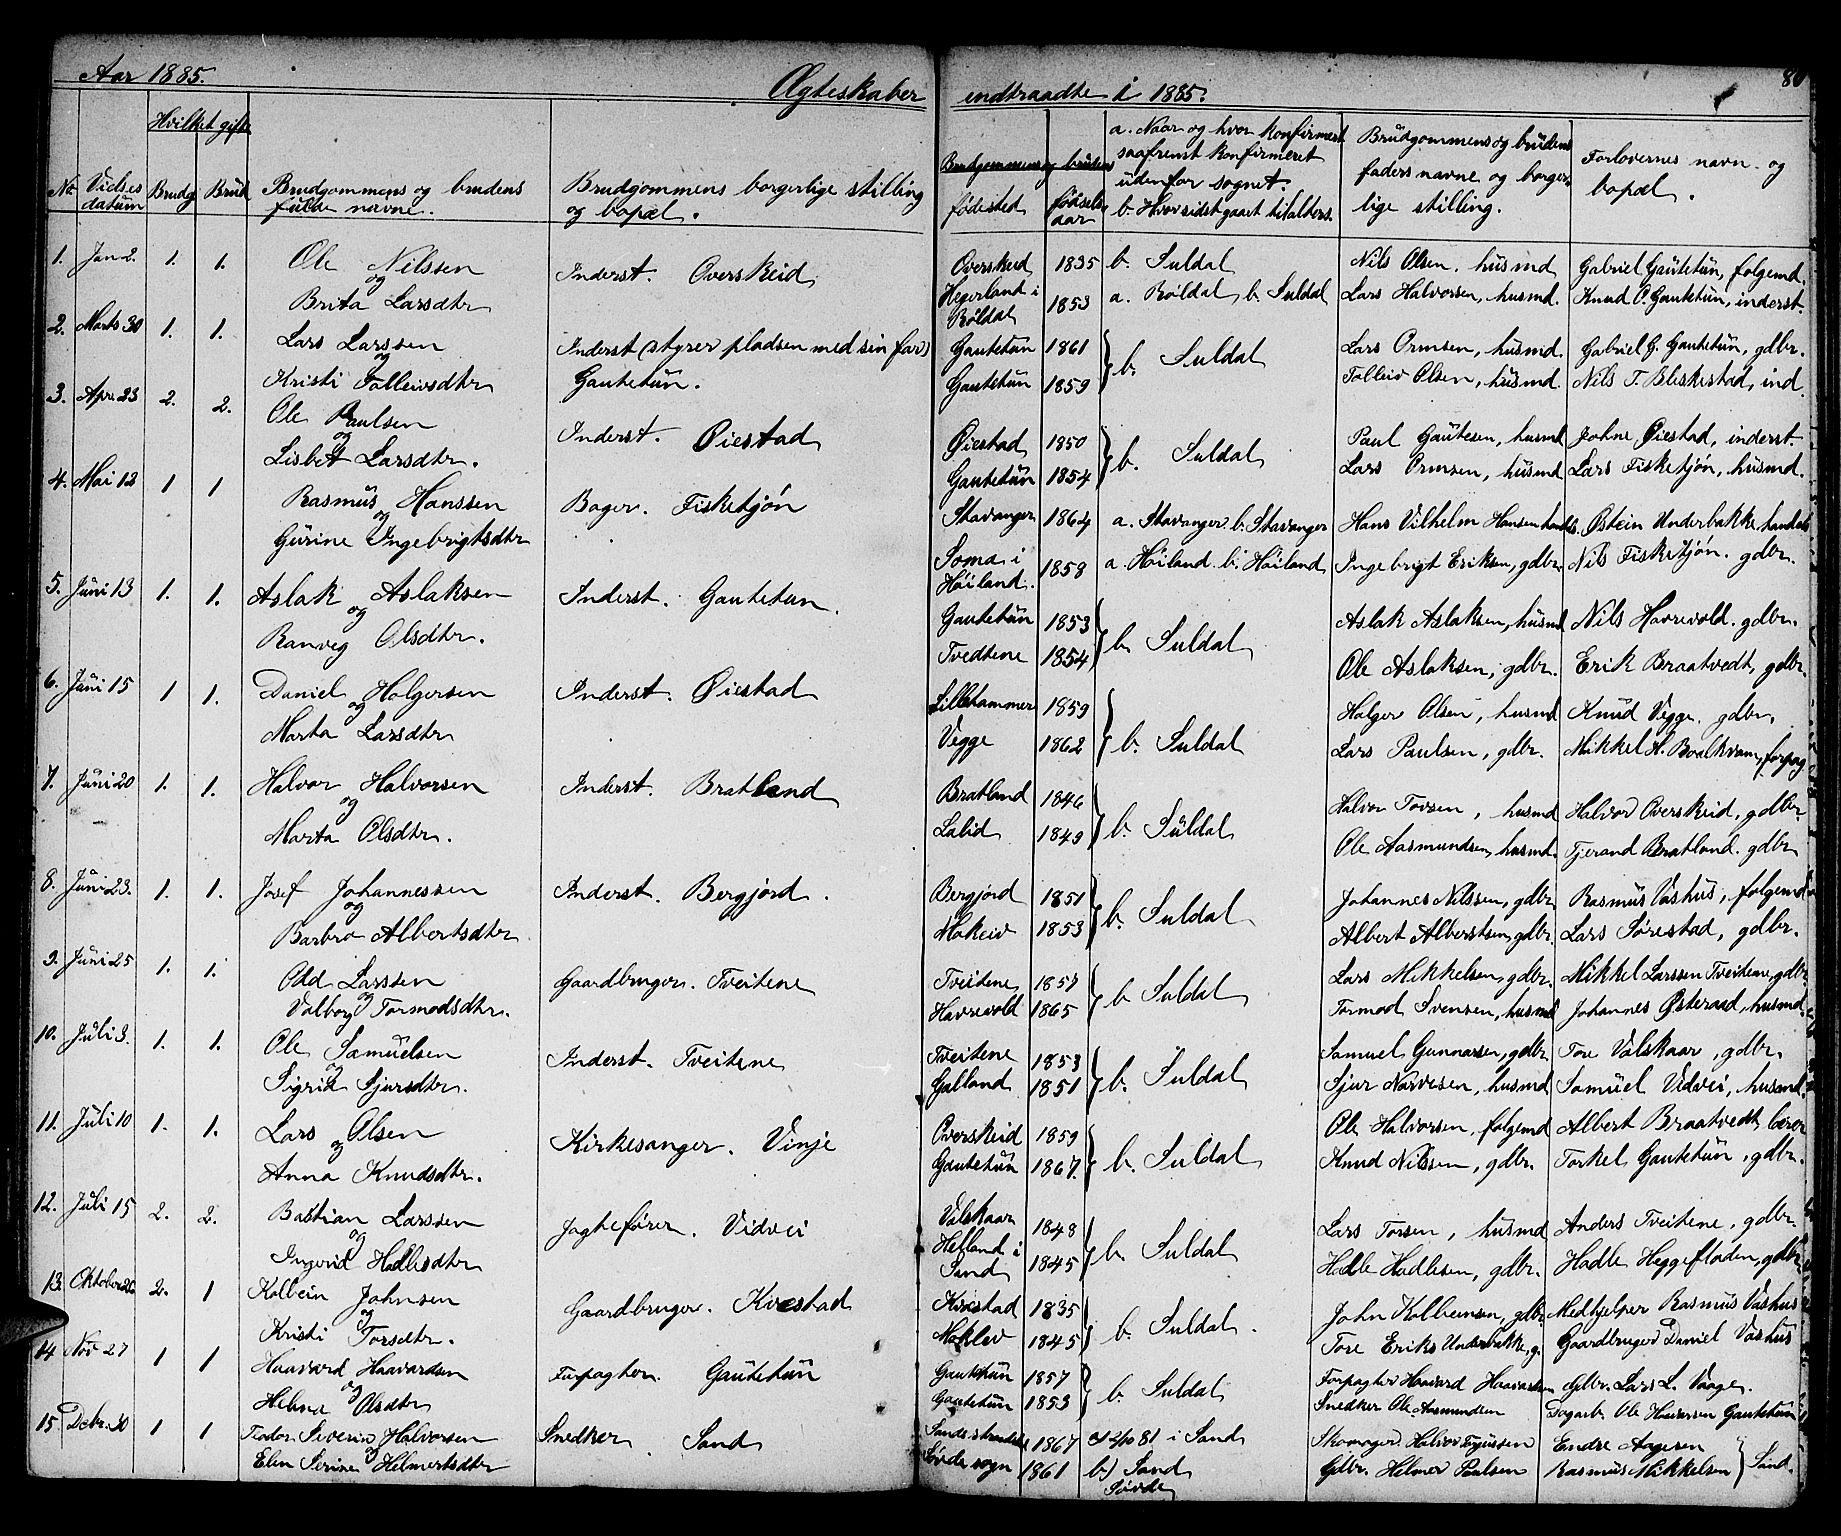 Aar 1885.
Ægteskaber indtraadte i 1885.
80
Hvilket gifte
No. Vielses datum
Brudg.
Brud
Brudgommens og brudens fulde navne.
Brudgommens borgerlige stilling og bopæl.
Brudgommens og brudens
fødested
fødsels aar
a. Naar og hvor konfirmeret saafremt konfirmeret udenfor sognet.
b. Hvor sidst gaaet til alters.
Brudgommens og brudens faders navne og borgerlige stilling.
Forlovernes navn og bopæl.
1. Jan 2. 1. 1. Ole Nilssen Inderst. Overskeid Overskeid 1835 b. Suldal Nils Olsen, husmd. Gabriel Gautetun, folgemd.
og
Brita Larsdtr Hegerland i Røldal 1853 a. Røldal b. Suldal Lars Halvorsen, husmd. Knud O. Gautetun, inderst.
2. Marts 30 1. 1. Lars Larssen Inderst (styrer pladsen med sin far) Gautetun 1861 b. Suldal Lars Ormsen, husmd. Gabriel G. Gautetun, gdbr.
og
Kristi Tolleivsdtr Gautetun. Gautetun 1859 Tolleiv Olsen, husmd. Nils T. Bleskestad, ind.
3. Apr. 23 2. 2. Ole Paulsen Inderst. Øiestad Øiestad 1850 b. Suldal Paul Gautesen, husmd Johne Øiestad, inderst.
og
Lisbet Larsdtr. Gautetun 1854 Lars Ormsen, husmd Lars Fisketjøn, husmd.
4. Mai 12 1 1 Rasmus Hanssen Bager. Fisketjøn Stavanger 1864 a. Stavanger b. Stavanger Hans Vilhelm Hansen Østein Underbakke handels
og
Gurine Ingebrigtsdtr Soma i Høiland. 1858 a. Høiland. b. Høiland Ingebrigt Eriksen, gdbr. Nils Fisketjøn. gdbr.
5. Juni 13 1. 1. Aslak Aslaksen Inderst. Gautetun. Gautetun 1853 b. Suldal Aslak Aslaksen, husmd Nils Havrevold. gdbr.
og
Ranveg Olsdtr. Tvedtene 1854 Ole Aslaksen, gdbr. Erik Braatvedt, gdbr.
6. Juni 15 1 1. Daniel Holgersen Inderst. Øiestad Lillehammer 1859 b. Suldal Holger Olsen, husmd Knud Vegge. gdbr.
og
Marta Larsdtr Vegge 1862 Lars Paulsen, gdbr. Mikkel H. Roalkvam, forpag
7. Juni 20 1. 1. Halvor Halvorsen Inderst. Bratland Bratland 1846 b. Suldal Halvor Torsen, husmd Halvor Overskeid, gdbr.
og
Marta Olsdtr. Lalid 1849 Ole Aasmundsen, husmd. Tjerand Bratland. gdbr
8. Juni 23. 1. 1. Josef Johannessen Inderst. Bergjord. Bergjord 1851 b. Suldal Johannes Nilssen, gdbr. Rasmus Vashus, folgemd
og
Barbro Albertsdtr Mokeiv 1853 Albert Albertsen, gdbr. Lars Sørestad, gdbr.
9. Juni 25 1. 1. Odd Larssen Gaardbruger. Tveitene Tveitene 1857 b. Suldal Lars Mikkelsen, gdbr. Mikkel Larssen Tveitene, gdbr
og
Valborg Tormodsdtr. Havrevold 1865 Tormod Svensen, husmd Johannes Østeraad, husmd
10. Juli 3. 1. 1. Ole Samuelsen Inderst. Tveitene Tveitene 1853 b. Suldal Samuel Gunnarsen, gdbr. Tore Valskaar, gdbr.
og
Sigrid Sjursdtr. Galland 1851 Sjur Narvesen, husmd Samuel Vidvei, husmd.
11. Juli 10 1. 1. Lars Olsen Kirkesanger. Vinje Overskeid 1859 b. Suldal Ole Halvorsen, folgemd Albert Braatvedt, lærer
og
Anna Knudsdtr. Gautetun 1867. Knud Nilssen, gdbr. Torkel Gautetun, gdbr.
12. Juli 15 2. 2. Bastian Larssen Jagtefører. Vidvei Valskaar 1848 b. Suldal Lars Torsen, husmd Anders Tveitene, gdbr.
og
Ingerid Hadlesdtr Helland i Sand 1845 Hadle Hadlesen, gdbr. Hadle Heggefloden, gdbr
13. Oktober 26 2. 1 Kolbein Johnsen Gaardbruger. Kvestad Kvæstad 1835 b. Suldal. John Kolbeinsen, gdbr. Medhjelper Rasmus Vashus
og
Kristi Torsdtr. Mokleiv 1845 Tore Eriks Underbakke, g. Gaardbruger Daniel Vashus
14 Nov 27 1 1 Haavard Haavardsen Forpagter. Gautetun Gautetun 1857 b. Suldal Forpagter Haavard Haavardsen Gdbr. Lars L. Vaage.
og
Helena Olsdtr Gautetun 1853 Snedker Ole Aasmundsen Dagarb. Ole Halvorsen Gautetun
15 Debr. 30 1 1 Teodor Severin Halvorsen Snedker. Sand 1867 81 i Sand Skomager Halvor Endre Aagesen
og
Elen Serine Helmertsdtr sogn 1861 b) Sand Gdbr. Helmer Paulsen Rasmus Mikkelsen Sand.